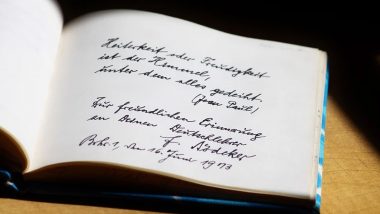 Heiterkeit oder Freudigkeit
ist der Himmel,
unter dem alles gedeiht.
(Jean Paul)
Zur freundlichen Erinnerung
an Deinen Deutschlehrer
F. Lödcker
den 16. Juni 1973